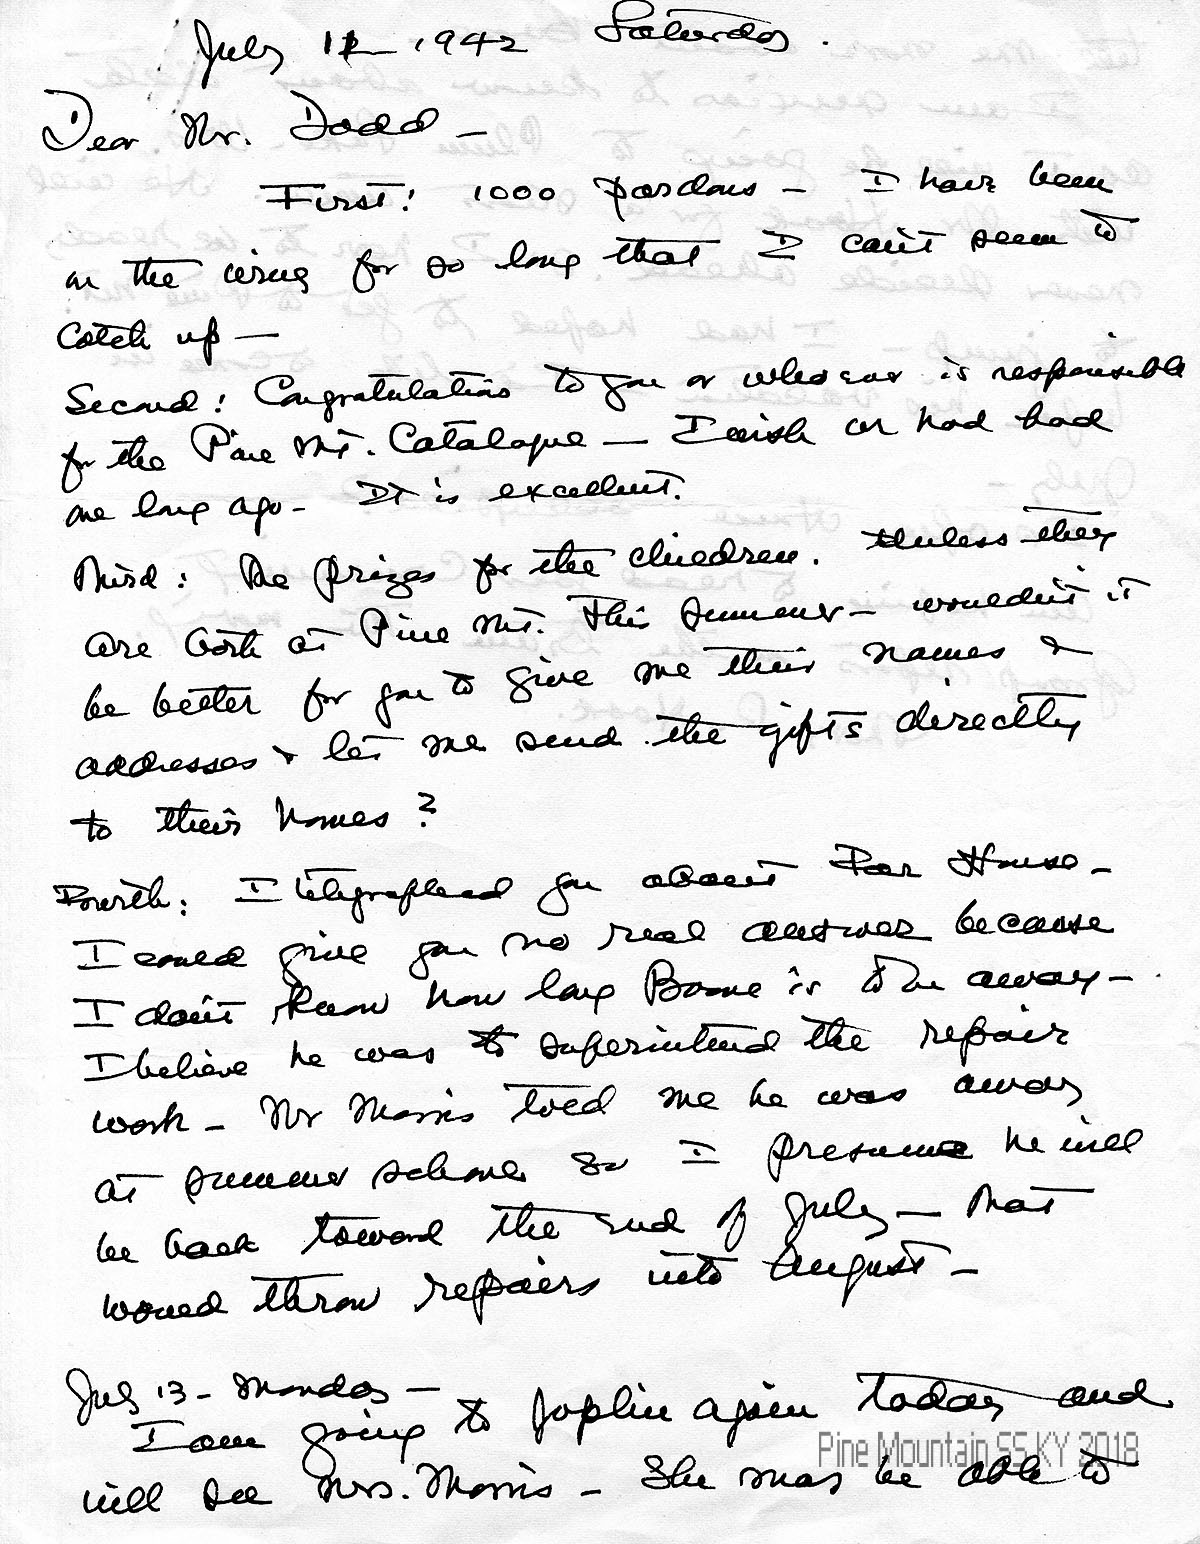 July 11 1942 Saturday.
Dear Mr. Dodd -
First! 1000 pardons - I have been
on the wing for so long that I can't seem to
catch up -
Second: Congratulations to you or whoever is responsible
for the Pine Mt. Catalogue - I wish we had had
one long ago - It is excellent.
Third: The prizes for the children. Unless they
are both at Pine Mt. this summer - wouldn't it
be better for you to give me their names &
addresses & let me send the gifts directly
to their homes?
Fourth: I telegraphed you about Far House -
I could give you no real answer because
I don't know how long Boone is to be away -
I believe he was to superintend the repair
work - Mr Morris told me he was away
at summer school so I presume he will
be back toward the end of July - That
would throw repairs into August -
July 13 - Monday -
I am going to Joplin again today and
will see Mrs. Morris - She may be able to
Pine Mountain SS KY 2018